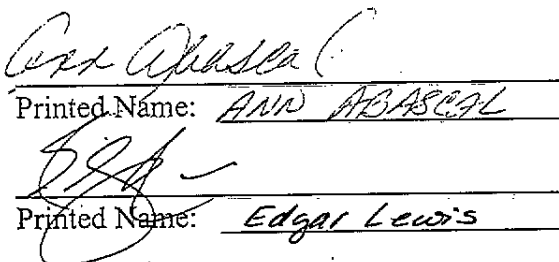 Ann Abascal
Printed Name: ANN ABASCAL
Printed Name: Edgar Lewis